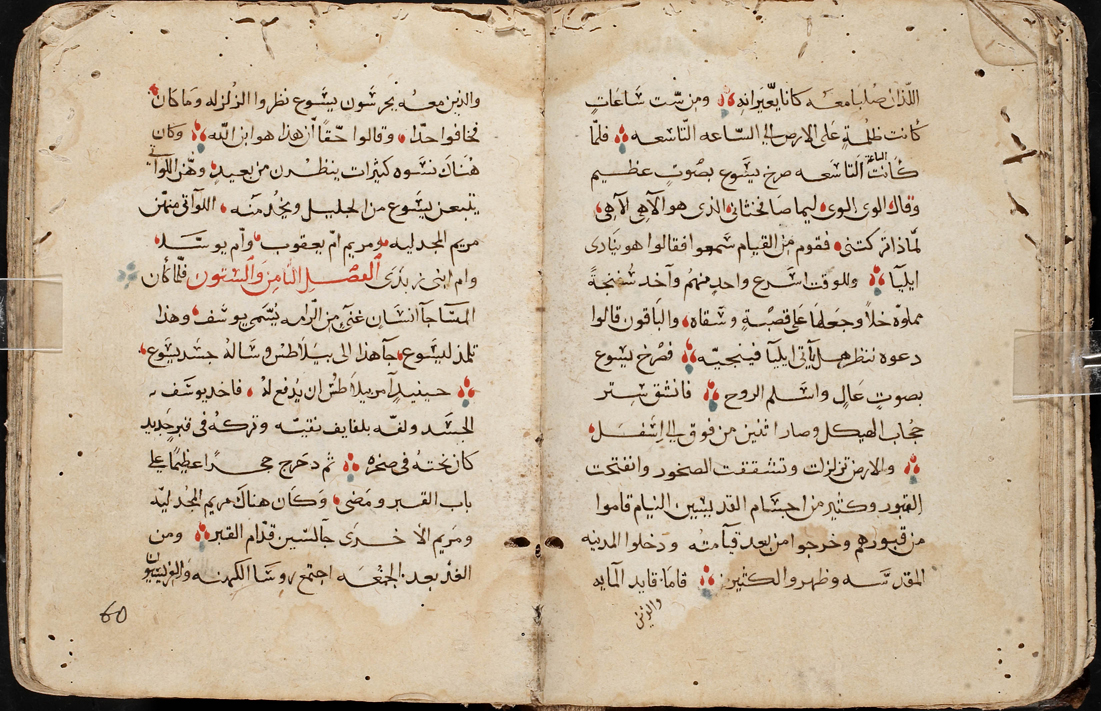 اللذان صلبا معه كانا يعيرانه ومن ست ساعات
كانت ظلمة على الارض الى الساعه التاسعه فلما
كانت الساعة التاسعه صرخ يسوع بصوت عظيم
وقال الوى الوى ليما صافختانى الذى هو الاهى الاهى
لماذا تركتنى فقوم من القيام سمعوا فقالوا هو ينادى
ايليا وللوقت اسرع واحد منهم وآخد سفنجة
مملوه خلا وجعلها على قصبة وسقاه والباقون قالوا
دعوه ننظر هل يأتى ايليا فينجيه فصرخ يسوع
بصوت عال واسلم الروح فانشق ستر
حجاب الهيكل وصار اثنين من فوق الى اسفل
والارض تزلزلت وتشققت الصخور وانفتحت
القبور وكثير من اجسام القديسين النيام قاموا
من قبورهم وخرجوا من بعد قيآمته ودخلوا المدينه
المقدسه وظهروا لكثير فاما قايد المايه
والذين
والذين معه يحرسون يسوع نظروا الزلزله وما كان
فخافوا جدا وقالوا حقا ان هذا هو ابن الله وكان
هناك نسوه كثيرات ينظرن من بعيد وهن اللواتى
يتبعن يسوع من الجليل ويخدمنه اللوآتى منهن
مريم المجدليه ومريم ام يعقوب وام يوسا
وام ابنى زبدى الفصل الثامن والستون فلما كان
المسا جآ انسان غنى من الرامه يسمى يوسف وهذا
تلمذ ليسوع جآ هذا الى بيلاطس وساله جسد يسوع
حينيد امر بيلاطس ان يدفع له فاخد يوسف
الجسد ولفه بلفايف نقيه وتركه فى قبر جديد
كان نحته فى صخره ثم دحرج حجرا عظيما على
باب القبر ومضى وكان هناك مريم المجدليه
ومريم الاخرى جالستين قدام القبر ومن
الغد بعد الجمعه اجتمع روسا الكهنه والفريسيون
60